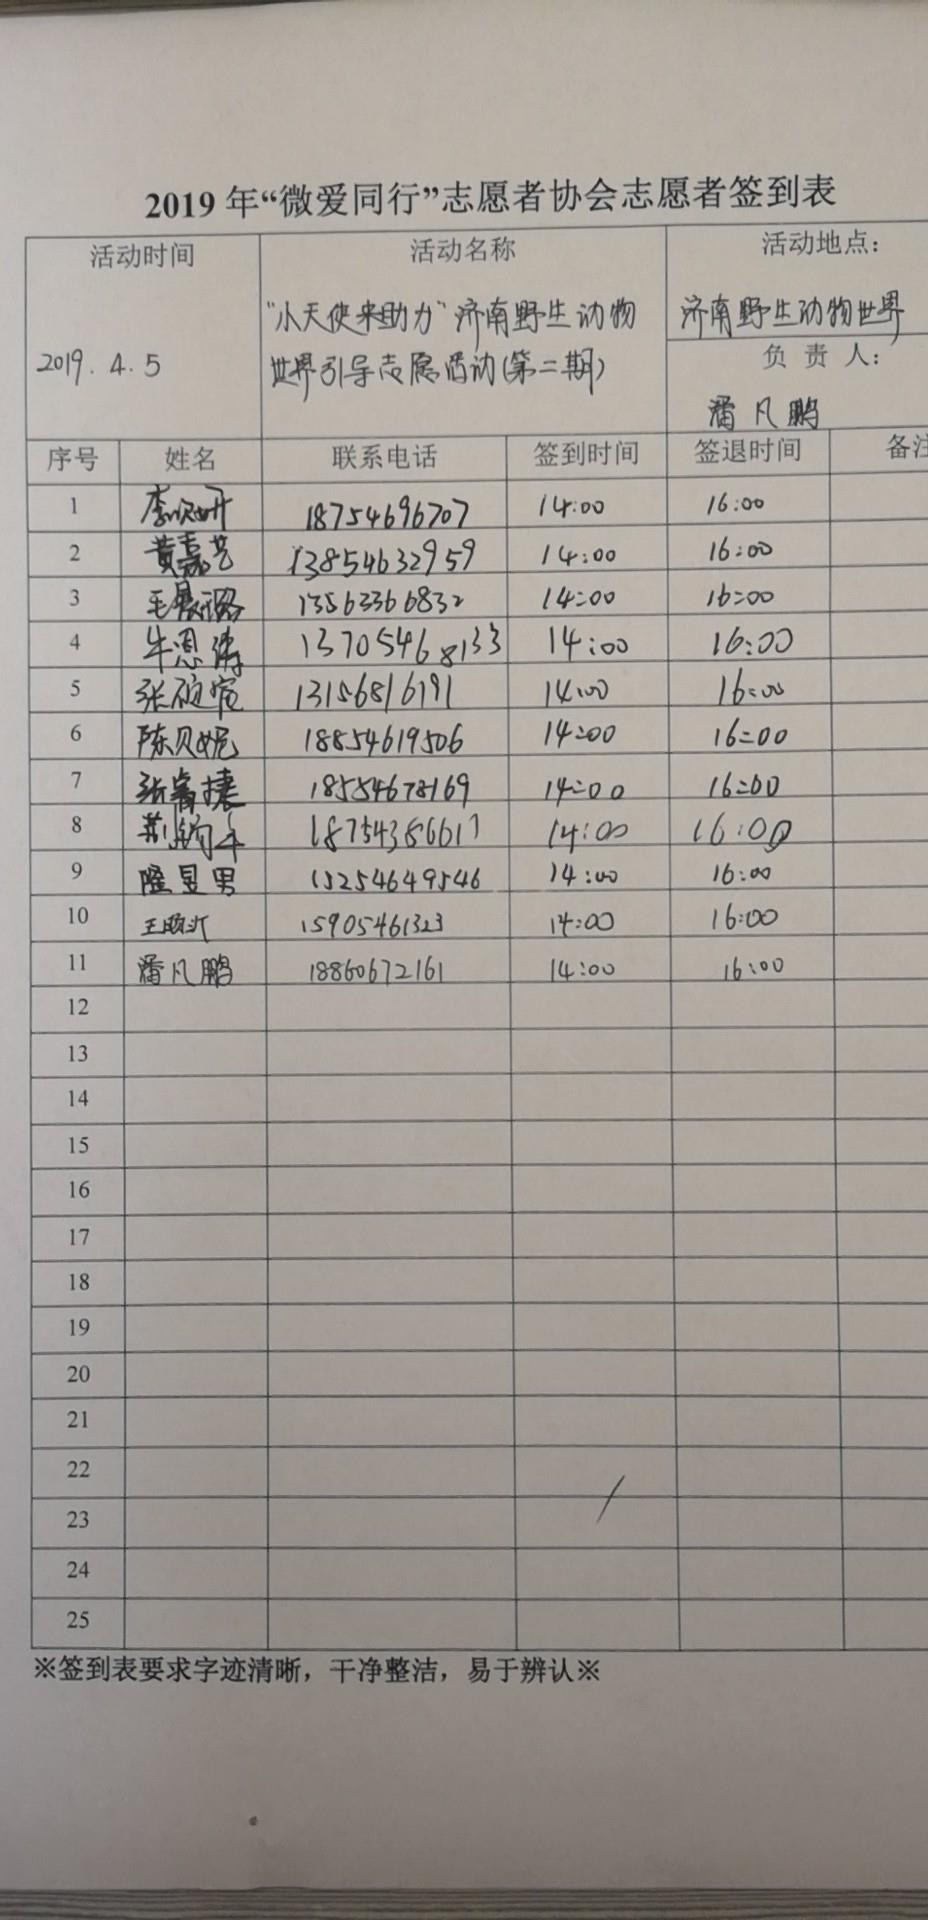 2019年“微爱同行”志愿者协会志愿者签到表
活动时间 活动名称 活动地点：
2019.4.5 “小天使来助力”济南野生动物 济南野生动物世界
世界引导志愿活动(第二期) 负 责 人：
潘凡鹏
序号 姓名 联系电话 签到时间 签退时间 备注
1 李 妍 18754696707 14:00 16:00
2 黄嘉艺 13854632959 14:00 16:00
3 毛晨璐 13563366832 14:00 16:00
4 牛恩涛 13705468133 14:00 16:00
5 张硕宸 13156816191 14:00 16:00
6 陈贝妮 18854619506 14:00 16:00
7 张 捷 18554678169 14:00 16:00
8 14:00 16:00
9 隆昱男 15254649546 14:00 16:00
10 王 15905461323 14:00 16:00
11 潘凡鹏 18860672161 14:00 16:00
12
13
14
15
16
17
18
19
20
21
22
23
24
25
※签到表要求字迹清晰，干净整洁，易于辨认※